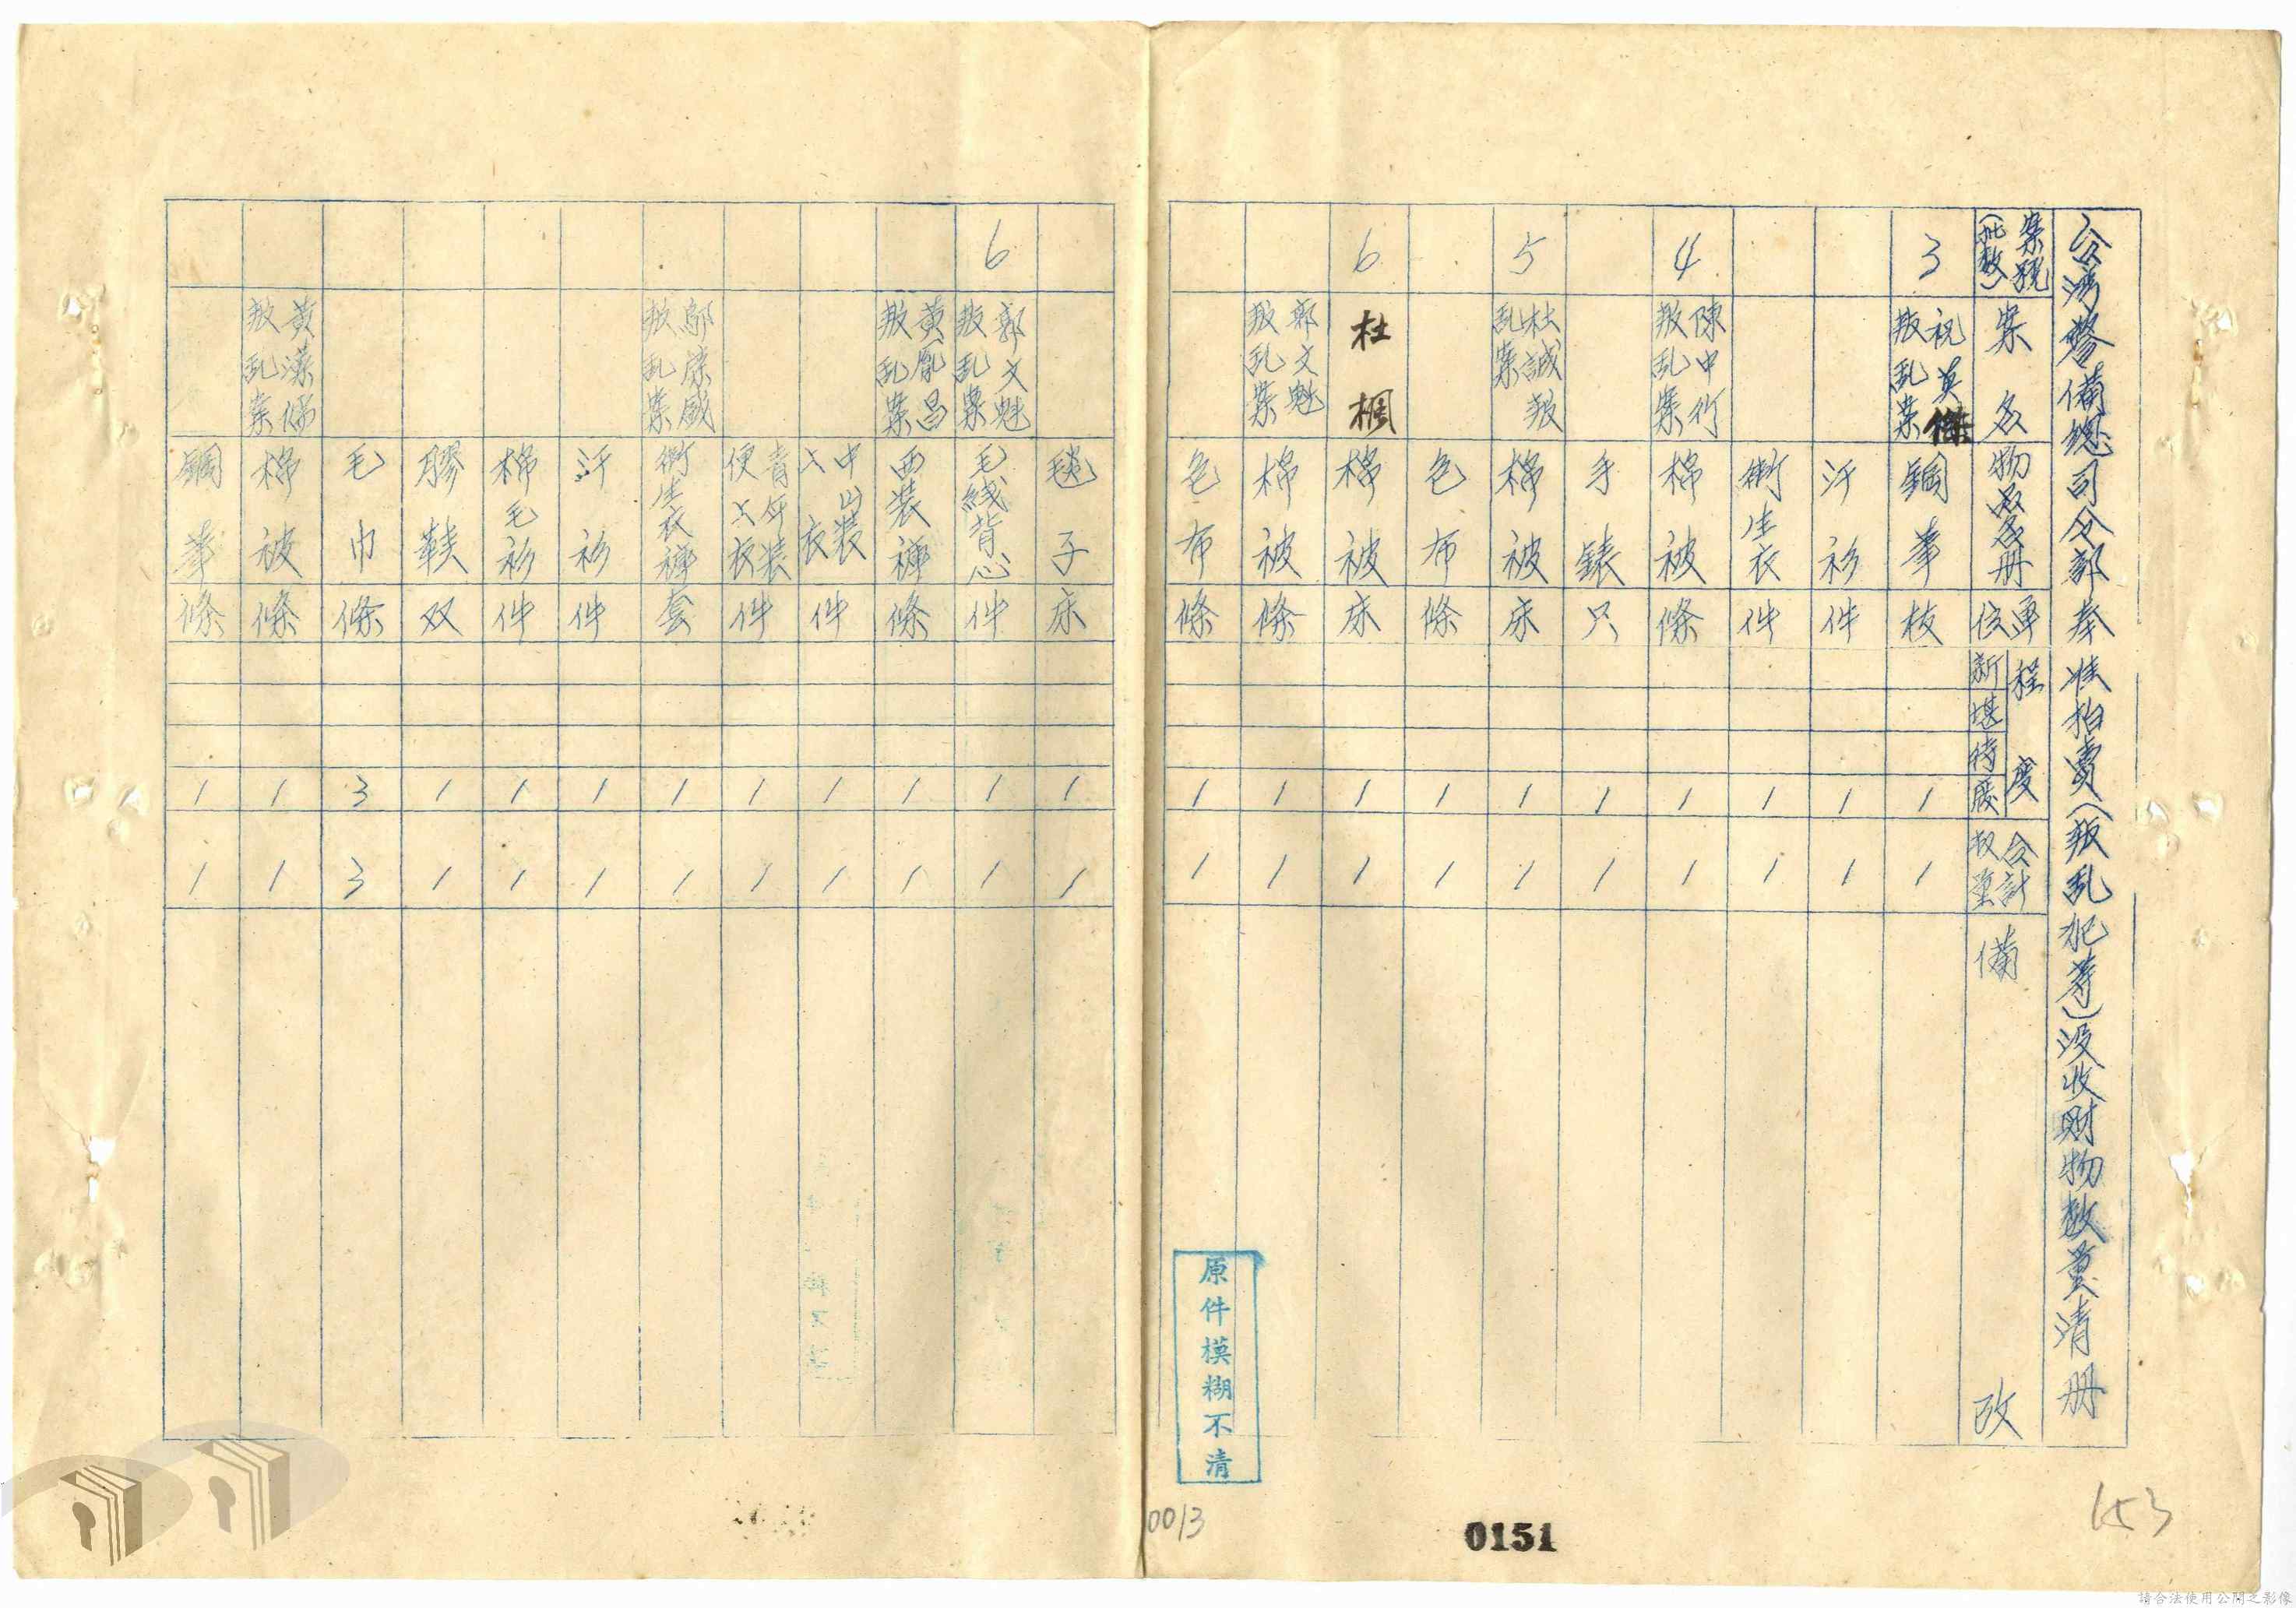 台湾警備總司令部奉准拍賣(叛乱犯等)没收財物数量清册
案號(批数)
案名
物品名册
單位
程度
新
堪
待
廢
合計
数量
備
改
3 祝英傑叛乱案 鋼筆 枝 1 1
汗衫 件 1 1
衛生衣 件 1 1
4 陳中竹叛乱案 棉被 條 1 1
手錶 只 1 1
5 杜誠叛乱案 棉被 床 1 1
包布 條 1 1
6 杜楓 棉被 床 1 1
郭文魁叛乱案 棉被 條 1 1
包布 條 1 1
毯子 床 1 1
6 郭文魁叛乱案 毛綫背心 件 1 1
黃胤昌叛乱案 西装褲 條 1 1
中山装上衣 件 1 1
青年装便上衣 件 1 1
鄔康威叛乱案 衛生衣褲 套 1 1
汗衫 件 1 1
棉毛衫 件 1 1
膠鞋 双 1 1
毛巾 條 3 3
黃漢佛叛乱案 棉被 條 1 1
鋼筆 條 1 1
原件模糊不清
0013
0151
153
請合法使用公開之影像